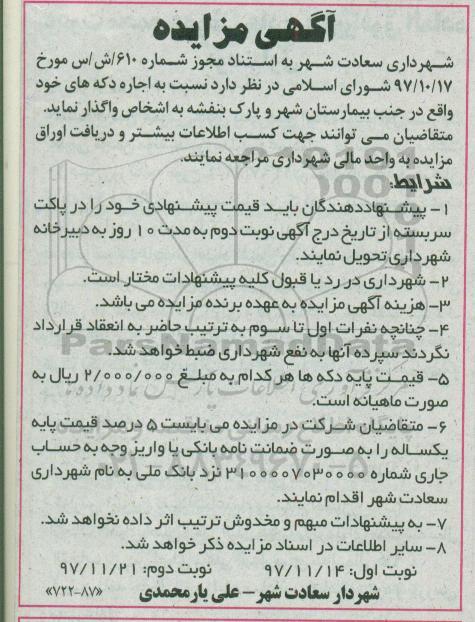 آگهی مزایده
شهرداری سعادت شهر به استناد مجوز شماره ۶۱۰/ش/س مورخ
۹۷/۱۰/۱۷ شورای اسلامی در نظر دارد نسبت به اجاره دکه های خود
واقع در جنب بیمارستان شهر و پارک بنفشه به اشخاص واگذار نماید.
متقاضیان می توانند جهت کسب اطلاعات بیشتر و دریافت اوراق
مزایده به واحد مالی شهرداری مراجعه نمایند.
شرایط:
۱- پیشنهاددهندگان باید قیمت پیشنهادی خود را در پاکت
سربسته از تاریخ درج آگهی نوبت دوم به مدت ۱۰ روز به دبیرخانه
شهرداری تحویل نمایند.
۲- شهرداری در رد یا قبول کلیه پیشنهادات مختار است.
۳- هزینه آگهی مزایده به عهده برنده مزایده می باشد.
۴- چنانچه نفرات اول تا سوم به ترتیب حاضر به انعقاد قرارداد
نگردند سپرده آنها به نفع شهرداری ضبط خواهد شد.
۵- قیمت پایه دکه ها هر کدام به مبلغ ۲/۰۰۰/۰۰۰ ریال به
صورت ماهیانه است.
۶- متقاضیان شرکت در مزایده می بایست ۵ درصد قیمت پایه
یکساله را به صورت ضمانت نامه بانکی یا واریز وجه به حساب
جاری شماره ۳۱۰۰۰۰۷۰۳۰۰۰۰ نزد بانک ملی به نام شهرداری
سعادت شهر اقدام نمایند.
۷- به پیشنهادات مبهم و مخدوش ترتیب اثر داده نخواهد شد.
۸- سایر اطلاعات در اسناد مزایده ذکر خواهد شد.
نوبت اول: ۹۷/۱۱/۱۴ نوبت دوم: ۹۷/۱۱/۲۱
شهردار سعادت شهر- علی یارمحمدی «۷۲۲-۸۷»
ParsNamadData